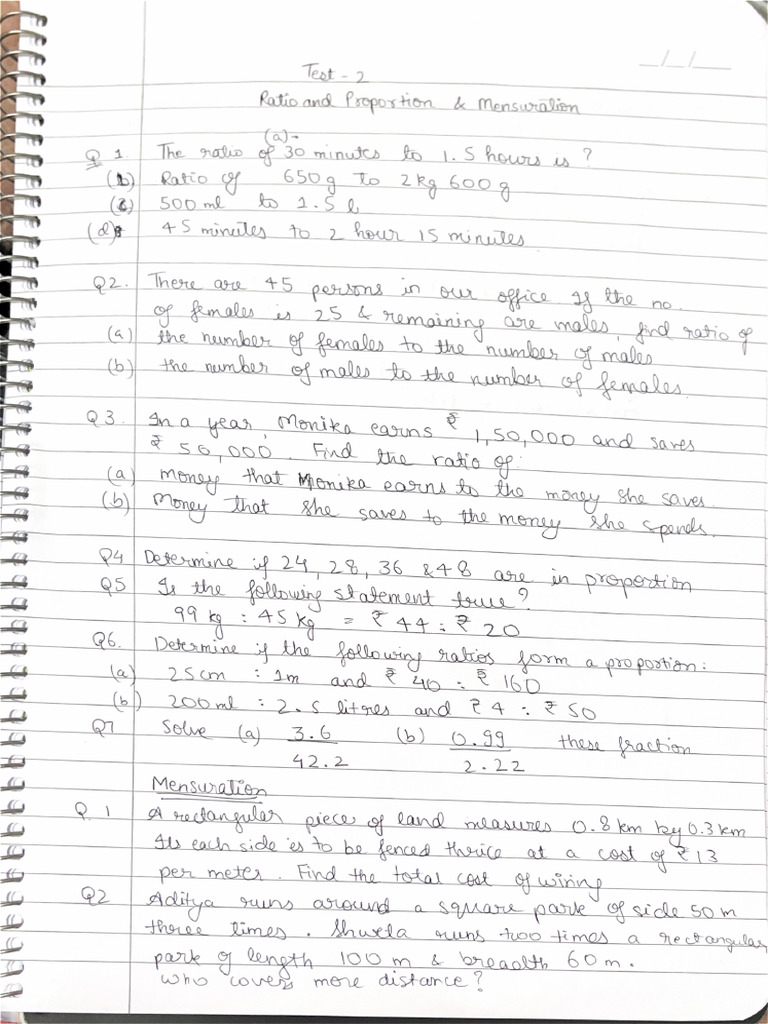 __/__/____
Test - 2
Ratio and Proportion & Mensuration
(a)-
Q 1 The ratio of 30 minutes to 1.5 hours is ?
(b) Ratio of 650 g to 2 kg 600 g
(c) 500 ml to 1.5 l
(d) 45 minutes to 2 hour 15 minutes
Q2. There are 45 persons in our office If the no.
of females is 25 & remaining are males, find ratio of
(a) the number of females to the number of males
(b) the number of males to the number of females.
Q3. In a year, Monika earns ₹ 1,50,000 and saves
₹ 50,000. Find the ratio of:
(a) money that Monika earns to the money she saves.
(b) Money that she saves to the money she spends.
Q4 Determine if 24, 28, 36 & 48 are in proportion
Q5 Is the following statement true?
99 kg : 45 kg = ₹ 44 : ₹ 20
Q6. Determine if the following ratios form a proportion:
(a) 25cm : 1m and ₹ 40 : ₹ 160
(b) 200 ml : 2.5 litres and ₹ 4 : ₹ 50
Q7 Solve (a) 3.6 (b) 0.99 these fraction
42.2 2.22
Mensuration
Q. 1 A rectangular piece of land measures 0.8 km by 0.3 km
Its each side is to be fenced thrice at a cost of ₹ 13
per meter. Find the total cost of wiring
Q2 Aditya runs around a square park of side 50 m
three times. Shweta runs two times a rectangular
park of length 100 m & breadth 60 m.
who covers more distance?